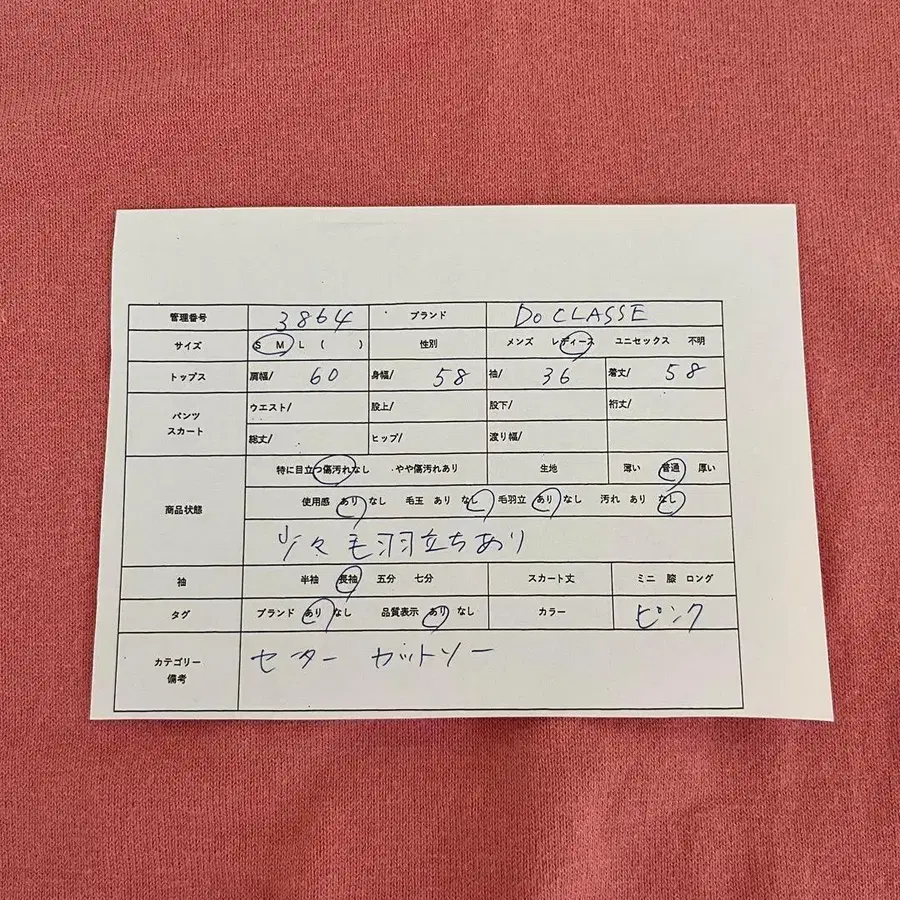 管理番号 3864 ブランド Do CLASSE
サイズ S M L ( ) 性別 メンズ レディース ユニセックス 不明
トップス 肩幅/ 60 身幅/ 58 袖/ 36 着丈/ 58
パンツ スカート ウエスト/ 股上/ 股下/ 裄丈/
総丈/ ヒップ/ 渡り幅/
商品状態 特に目立つ傷汚れなし やや傷汚れあり 生地 薄い 普通 厚い
使用感 あり なし 毛玉 あり なし 毛羽立 あり なし 汚れ あり なし
少々毛羽立ちあり
袖 半袖 長袖 五分 七分 スカート丈 ミニ 膝 ロング
タグ ブランド あり なし 品質表示 あり なし カラー ピンク
カテゴリー 備考 セーター カットソー